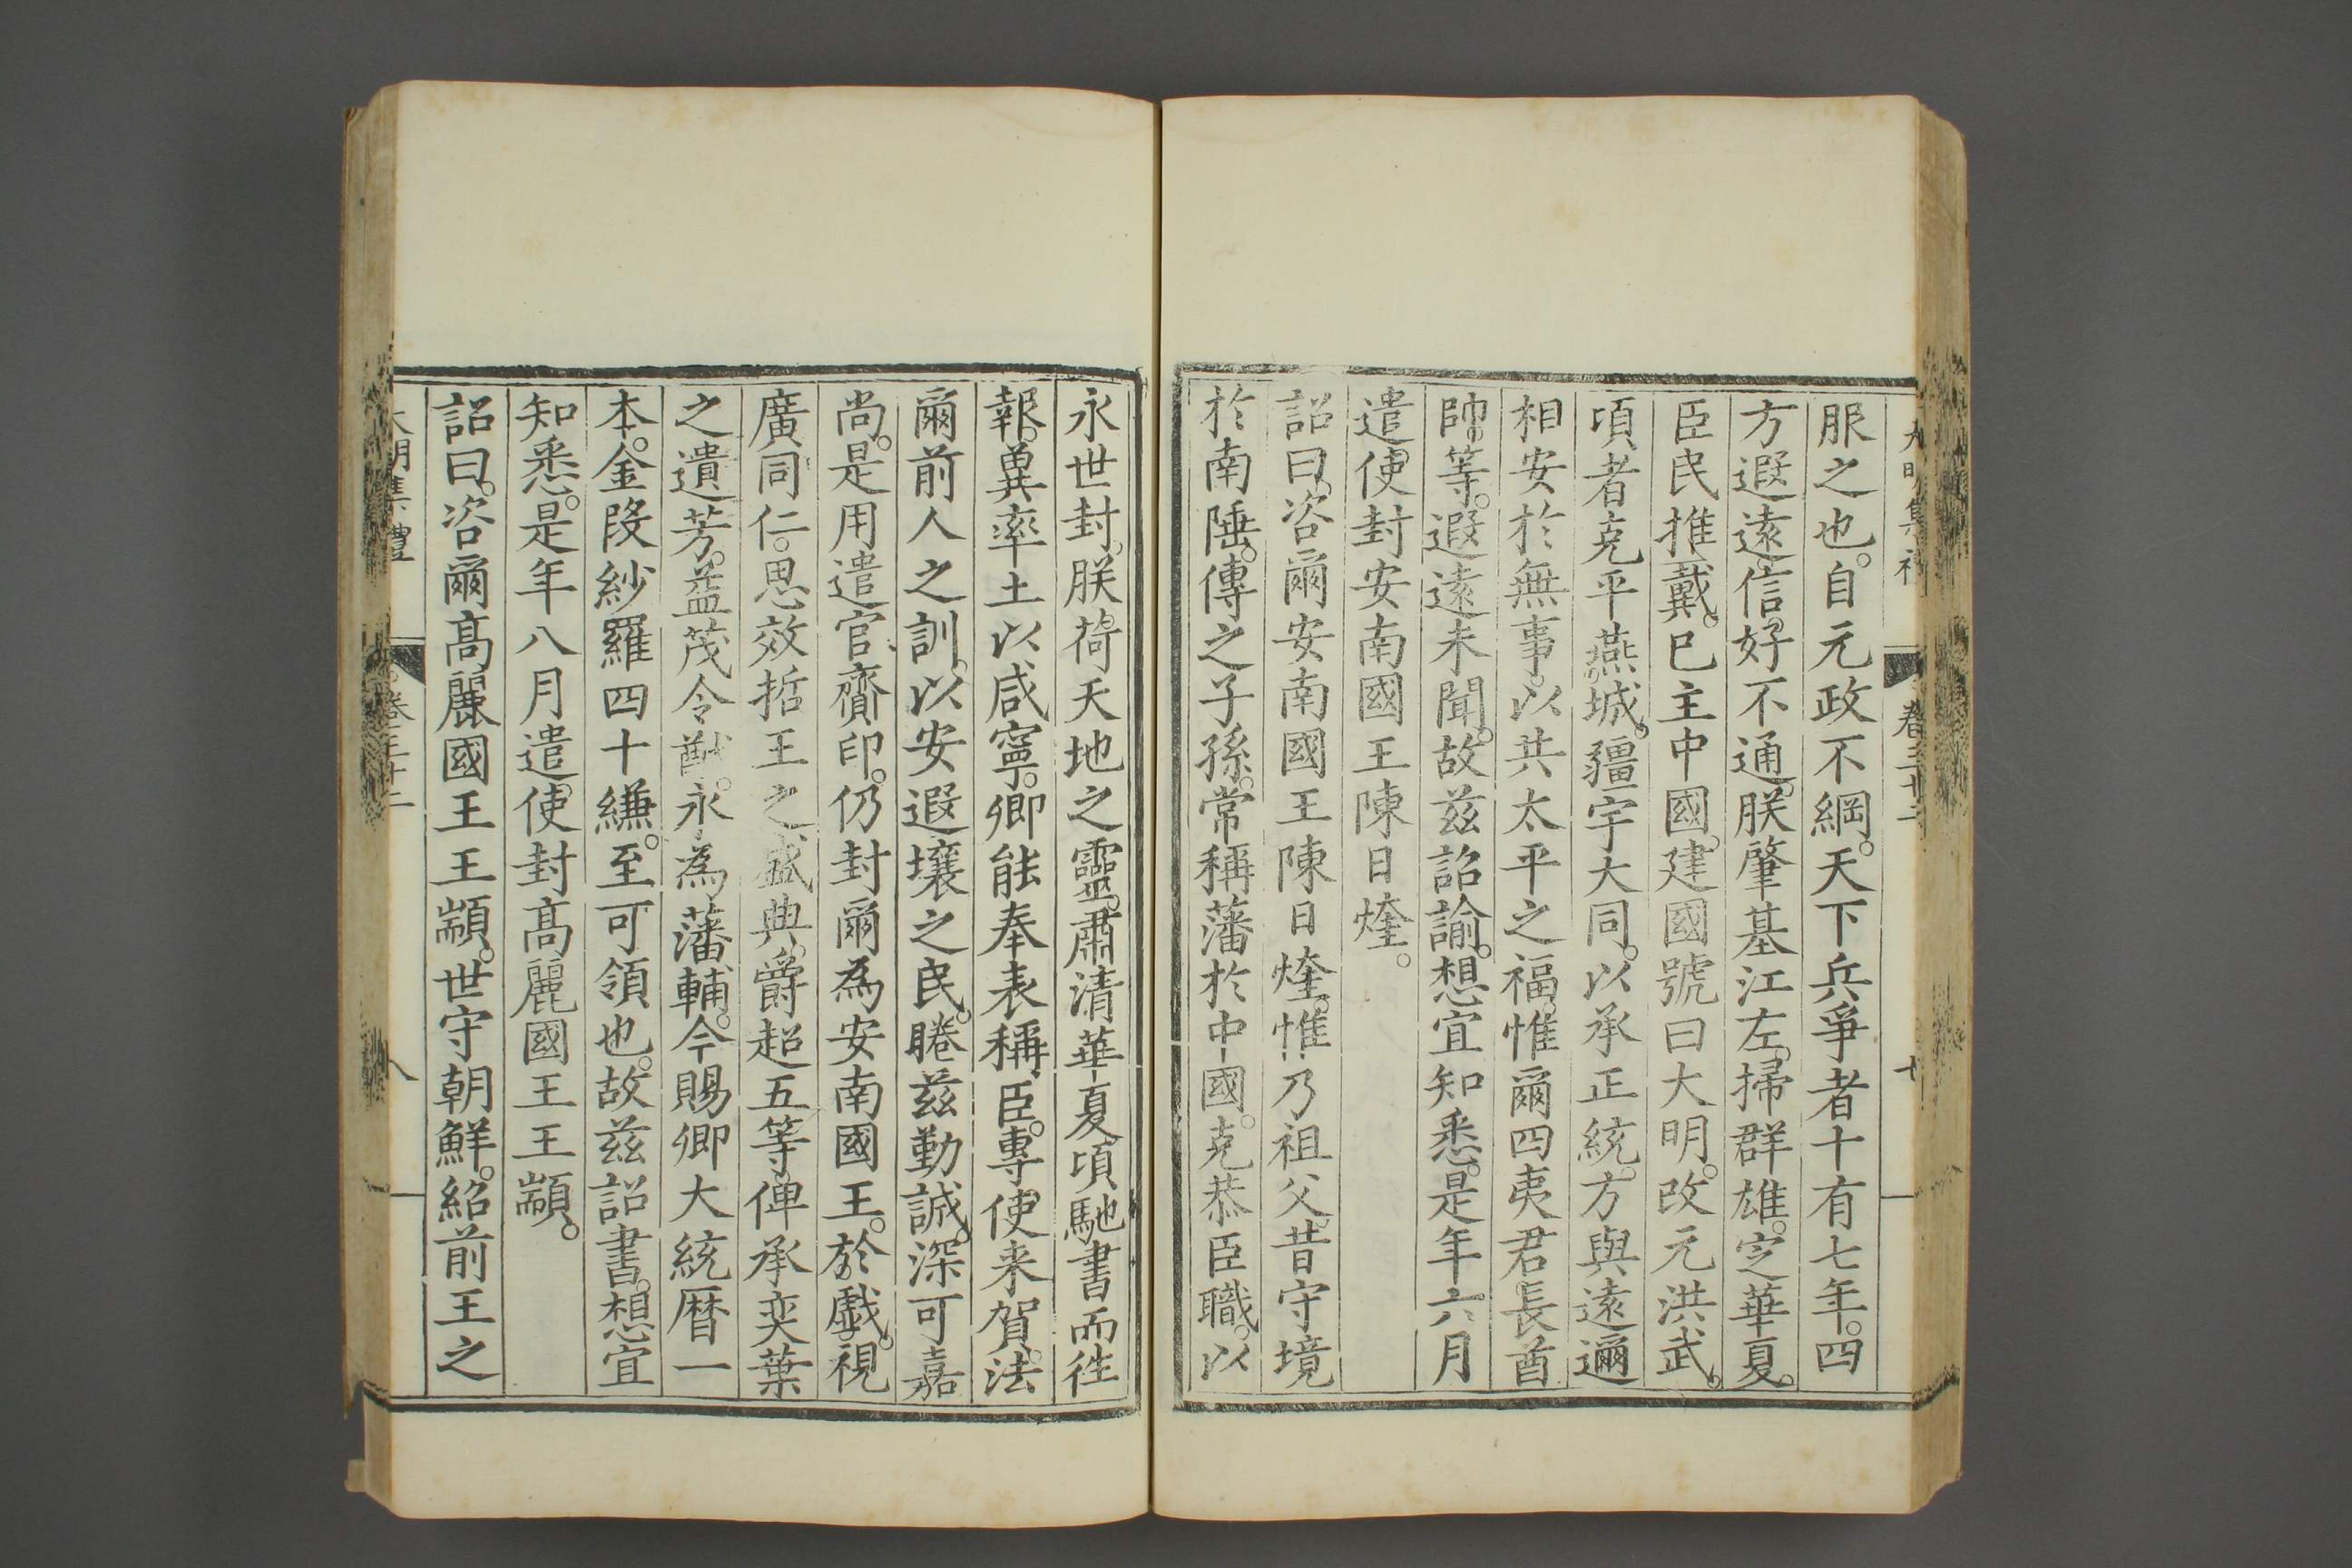 大明集禮 卷三十二 七
服之也。自元政不綱。天下兵爭者十有七年。四
方遐遠。信好不通。朕肇基江左。掃群雄。定華夏。
臣民推戴。已主中國。建國號曰大明。改元洪武。
頃者克平燕城。疆宇大同。以承正統。方與遠邇
相安於無事。以共太平之福。惟爾四夷君長酋
帥等。遐遠未聞。故茲詔諭。想宜知悉。是年六月
遣使封安南國王陳日煃。
詔曰。咨爾安南國王陳日煃。惟乃祖父。昔守境
於南陲。傳之子孫。常稱藩於中國。克恭臣職。以
永世封。朕荷天地之靈。肅清華夏。頃馳書而徃
報。兾率土以咸寧。卿能奉表稱臣。專使来賀。法
爾前人之訓。以安遐壤之民。睠茲勤誠。深可嘉
尚。是用遣官齎印。仍封爾為安南國王。於戲。視
廣同仁。思效哲王之盛典。爵超五等。俾承奕葉
之遺芳。益茂令猷。永為藩輔。今賜卿大統曆一
本。金段紗羅四十縑。至可領也。故茲詔書。想宜
知悉。是年八月遣使封髙麗國王王顓。
詔曰。咨爾髙麗國王王顓。世守朝鮮。紹前王之
大明集禮 卷三十二 八